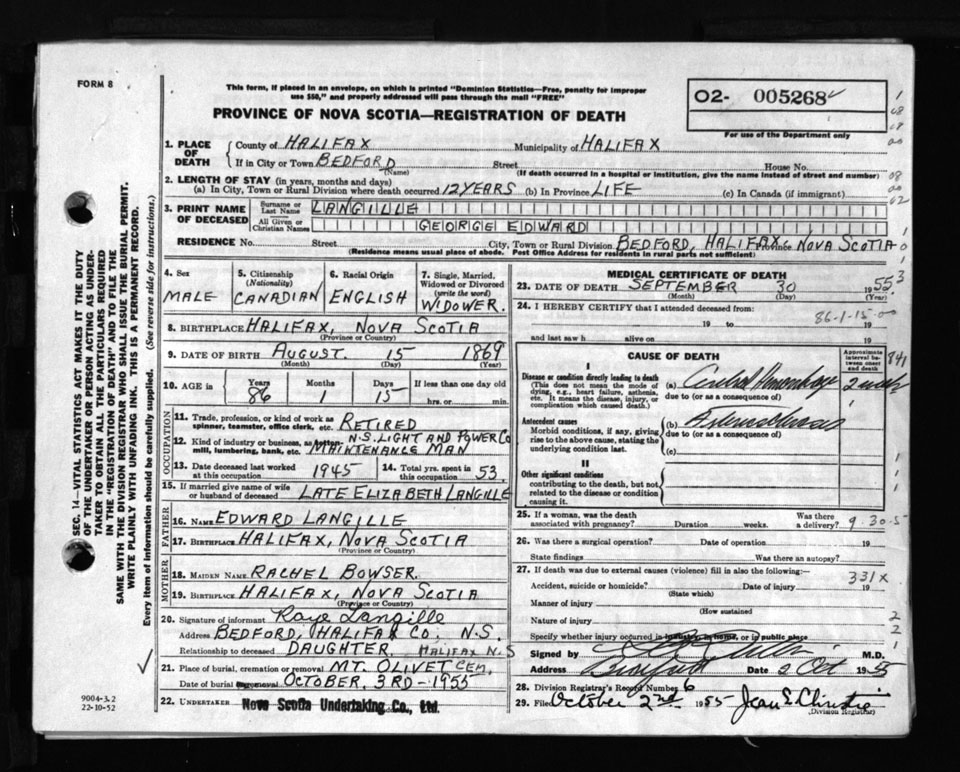 FORM 8
This form, if placed in an envelope, on which is printed "Dominion Statistics—Free, penalty for improper
use $50," and properly addressed will pass through the mail "FREE"
PROVINCE OF NOVA SCOTIA—REGISTRATION OF DEATH
O2- 005268
For use of the Department only
1. PLACE OF DEATH
County of HALIFAX Municipality of HALIFAX
If in City or Town BEDFORD Street House No.
(Name) (If death occurred in a hospital or institution, give the name instead of street and number)
2. LENGTH OF STAY (in years, months and days)
(a) In City, Town or Rural Division where death occurred 12 YEARS (b) In Province LIFE (c) In Canada (if immigrant)
3. PRINT NAME OF DECEASED
Surname or Last Name LANGILLE
All Given or Christian Names GEORGE EDWARD
RESIDENCE No. Street City, Town or Rural Division BEDFORD, HALIFAX Province NOVA SCOTIA
(Residence means usual place of abode. Post Office Address for residents in rural parts not sufficient)
4. Sex
MALE
5. Citizenship
(Nationality)
CANADIAN
6. Racial Origin
ENGLISH
7. Single, Married, Widowed or Divorced
(write the word)
WIDOWER.
8. BIRTHPLACE HALIFAX, NOVA SCOTIA
(Province or Country)
9. DATE OF BIRTH AUGUST. 15 1869
(Month) (Day) (Year)
10. AGE in Years Months Days If less than one day old
86 1 15 hrs. or min.
OCCUPATION
11. Trade, profession, or kind of work as
spinner, teamster, office clerk, etc. RETIRED
12. Kind of industry or business, as N.S. LIGHT AND POWER CO
mill, lumbering, bank, etc. MAINTENANCE MAN
13. Date deceased last worked
at this occupation 1945
14. Total yrs. spent in
this occupation 53
15. If married give name of wife
or husband of deceased LATE ELIZABETH LANGILLE
FATHER
16. NAME EDWARD LANGILLE
17. BIRTHPLACE HALIFAX, NOVA SCOTIA
(Province or Country)
MOTHER
18. MAIDEN NAME RACHEL BOWSER.
19. BIRTHPLACE HALIFAX, NOVA SCOTIA
(Province or Country)
20. Signature of informant Raye Langille
Address BEDFORD, HALIFAX CO. N.S.
Relationship to deceased DAUGHTER. HALIFAX N.S
21. Place of burial, cremation or removal MT. OLIVET CEM.
Date of burial OCTOBER, 3RD - 1955
22. UNDERTAKER Nova Scotia Undertaking Co., Ltd.
MEDICAL CERTIFICATE OF DEATH
23. DATE OF DEATH SEPTEMBER 30 1955
(Month) (Day) (Year)
24. I HEREBY CERTIFY that I attended deceased from:
86-1-15-00
19 to 19
and last saw h alive on 19
CAUSE OF DEATH
Approximate interval between onset and death
I
Disease or condition directly leading to death
(This does not mean the mode of
dying, e.g., heart failure, asthenia,
etc. It means the disease, injury, or
complication which caused death.)
(a) Cerebral Hemorrhage
due to (or as a consequence of)
Antecedent causes
Morbid conditions, if any, giving
rise to the above cause, stating the
underlying condition last.
(b)
due to (or as a consequence of)
(c)
II
Other significant conditions
contributing to the death, but not
related to the disease or condition
causing it.
841
25. If a woman, was the death Was there
associated with pregnancy? Duration weeks. a delivery?
9-30-5
26. Was there a surgical operation? Date of operation 19
State findings Was there an autopsy?
27. If death was due to external causes (violence) fill in also the following:—
331X
Accident, suicide or homicide? Date of injury 19
(State which)
Manner of injury
(How sustained
Nature of injury
Specify whether injury occurred in industry, in home, or in public place
Signed by M.D.
Address Date 2 Oct 1955
28. Division Registrar's Record Number 6
29. Filed October 2nd 1955 Jean S. Christie
(Division Registrar)
SEC. 14—VITAL STATISTICS ACT MAKES IT THE DUTY
OF THE UNDERTAKER OR PERSON ACTING AS UNDER-
TAKER TO OBTAIN ALL THE PARTICULARS REQUIRED
IN THE "REGISTRATION OF DEATH" AND TO FILE THE
SAME WITH THE DIVISION REGISTRAR WHO SHALL ISSUE THE BURIAL PERMIT.
WRITE PLAINLY WITH UNFADING INK. THIS IS A PERMANENT RECORD.
Every item of information should be carefully supplied. (See reverse side for instructions.)
9004-3.2
22-10-52